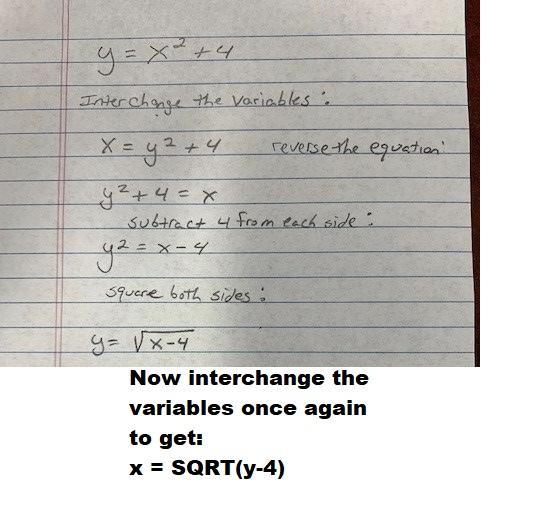 y = x² + 4
Interchange the variables :
x = y² + 4 reverse the equation:
y² + 4 = x
subtract 4 from each side :
y² = x - 4
square both sides :
y = √x-4
Now interchange the
variables once again
to get:
x = SQRT(y-4)